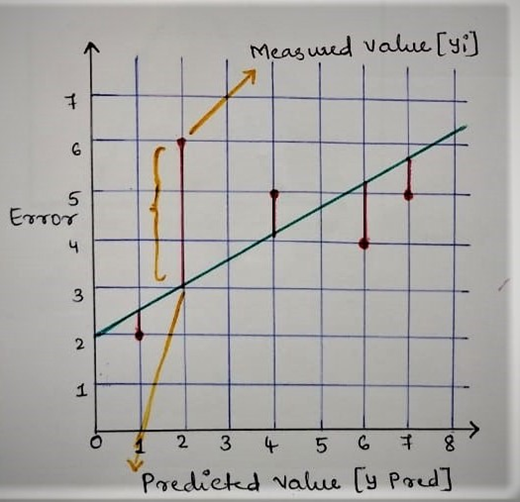 Measured value [yi]
7
6
5
Error
4
3
2
1
0 1 2 3 4 5 6 7 8
Predicted value [y Pred]